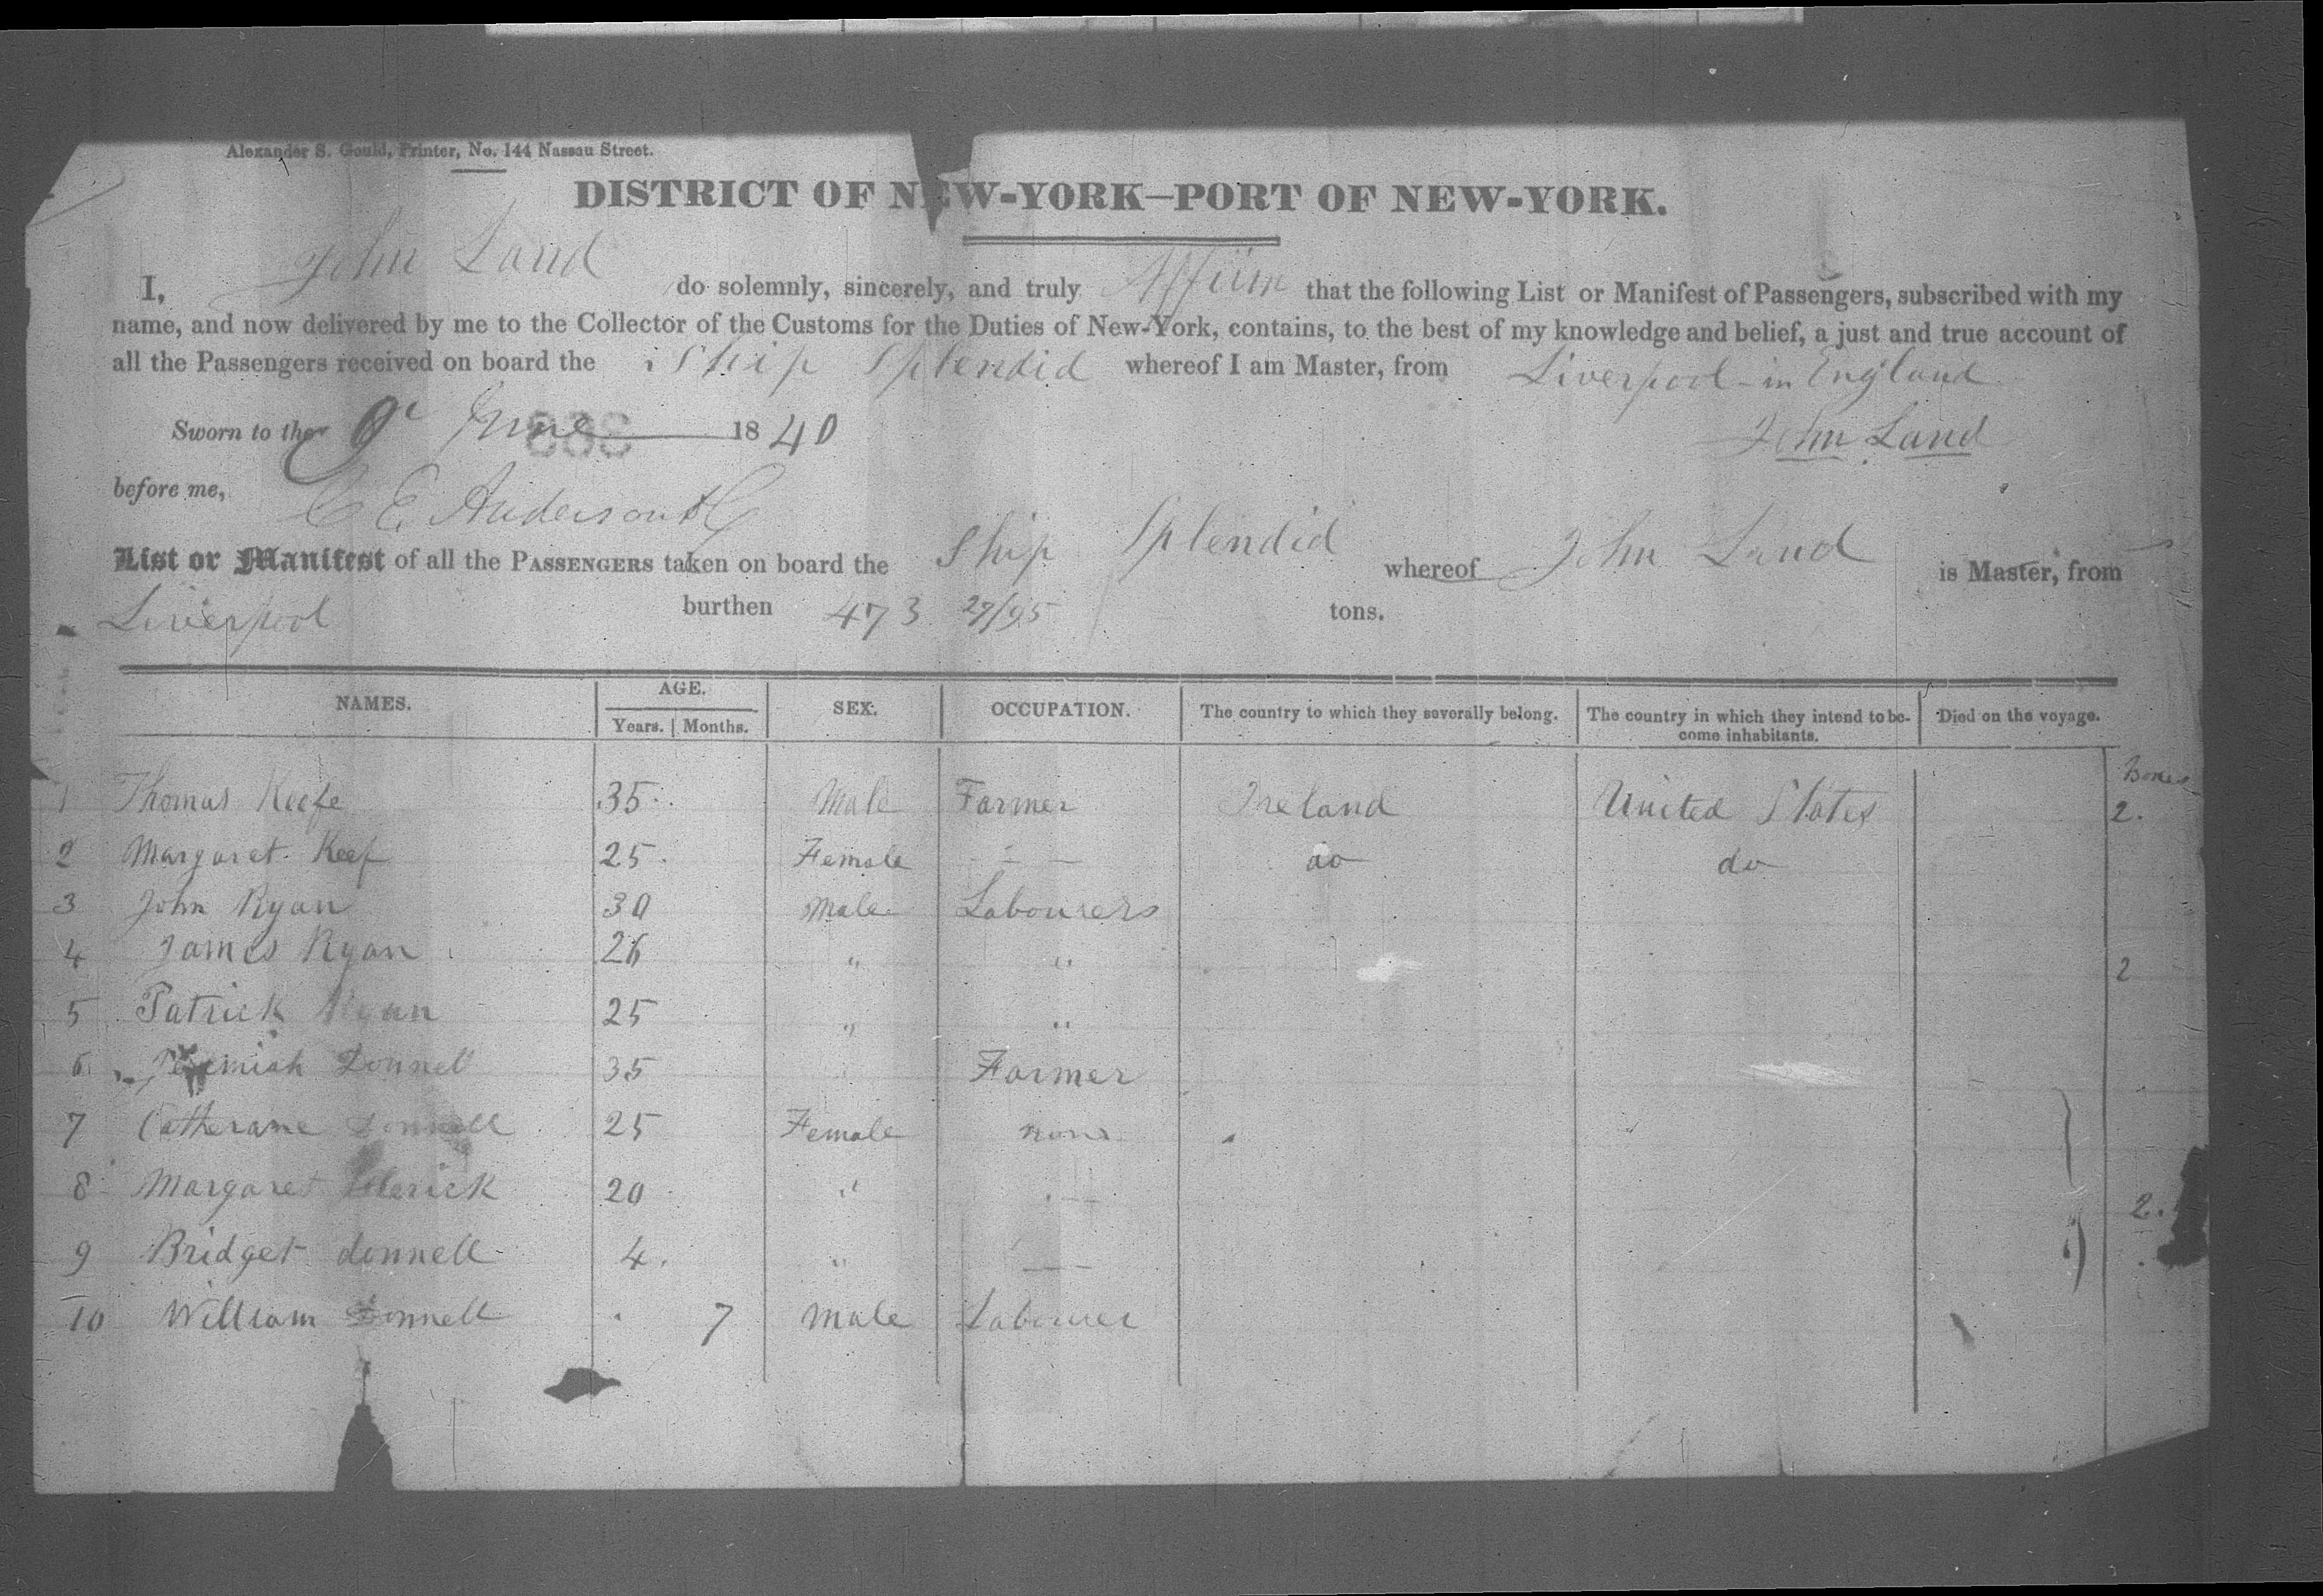 Alexander S. Gould, Printer, No. 144 Nassau Street.
DISTRICT OF NEW-YORK—PORT OF NEW-YORK.
I, John Land do solemnly, sincerely, and truly Affirm that the following List or Manifest of Passengers, subscribed with my
name, and now delivered by me to the Collector of the Customs for the Duties of New-York, contains, to the best of my knowledge and belief, a just and true account of
all the Passengers received on board the Ship Splendid whereof I am Master, from Liverpool - in England
Sworn to the 9 June 1840 John Land
before me, C E Anderson
List or Manifest of all the PASSENGERS taken on board the Ship Splendid whereof John Land is Master, from
Liverpool burthen 473 27/95 tons.
NAMES. AGE. Years. Months. SEX. OCCUPATION. The country to which they severally belong. The country in which they intend to become inhabitants. Died on the voyage.
1 Thomas Keefe 35 Male Farmer Ireland United States 2.
2 Margaret Keef 25 Female — do do
3 John Ryan 30 Male Labourers
4 James Ryan 26 " " 2
5 Patrick Ryan 25 " "
6 Jeremiah Donnell 35 Farmer
7 Catherane Donnell 25 Female none
8 Margaret 20 " — 2.
9 Bridget donnell 4. " —
10 William Donnell 7 Male Labourer